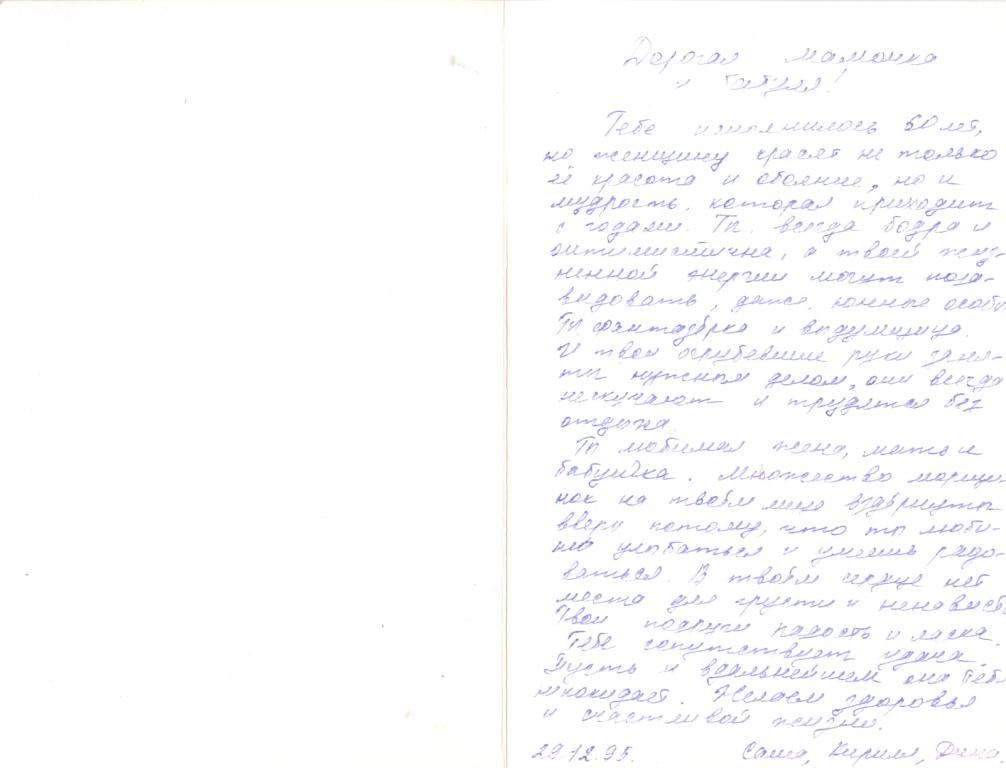 Дорогая мамочка
и бабуля!
Тебе исполнилось 60 лет,
но женщину красят не только
её красота и обояние, но и
мудрость, которая приходит
с годами. Ты всегда бодра и
оптимистична, а твоей жиз-
ненной энергии могут поза-
видовать, даже, юнные особы
Ты фантазёрка и выдумщица.
И твои огрубевшие руки заня-
ты нужным делом, они всегда
нескучают и трудятся без
отдыха.
Ты любимая жена, мать и
бабушка. Множество морщи-
нок на твоём лице вздёрнуты
вверх потому, что ты люби-
шь улыбаться и умеешь радо-
ваться. В твоём сердце нет
места для грусти и ненависти
Твои подруги радость и ласка.
Тебе сопутствует удача.
Пусть и вдальнейшем она тебя
непокидает. Желаем здоровья
и счастливой жизни.
29.12.95. Саша, Кирилл, Дина.